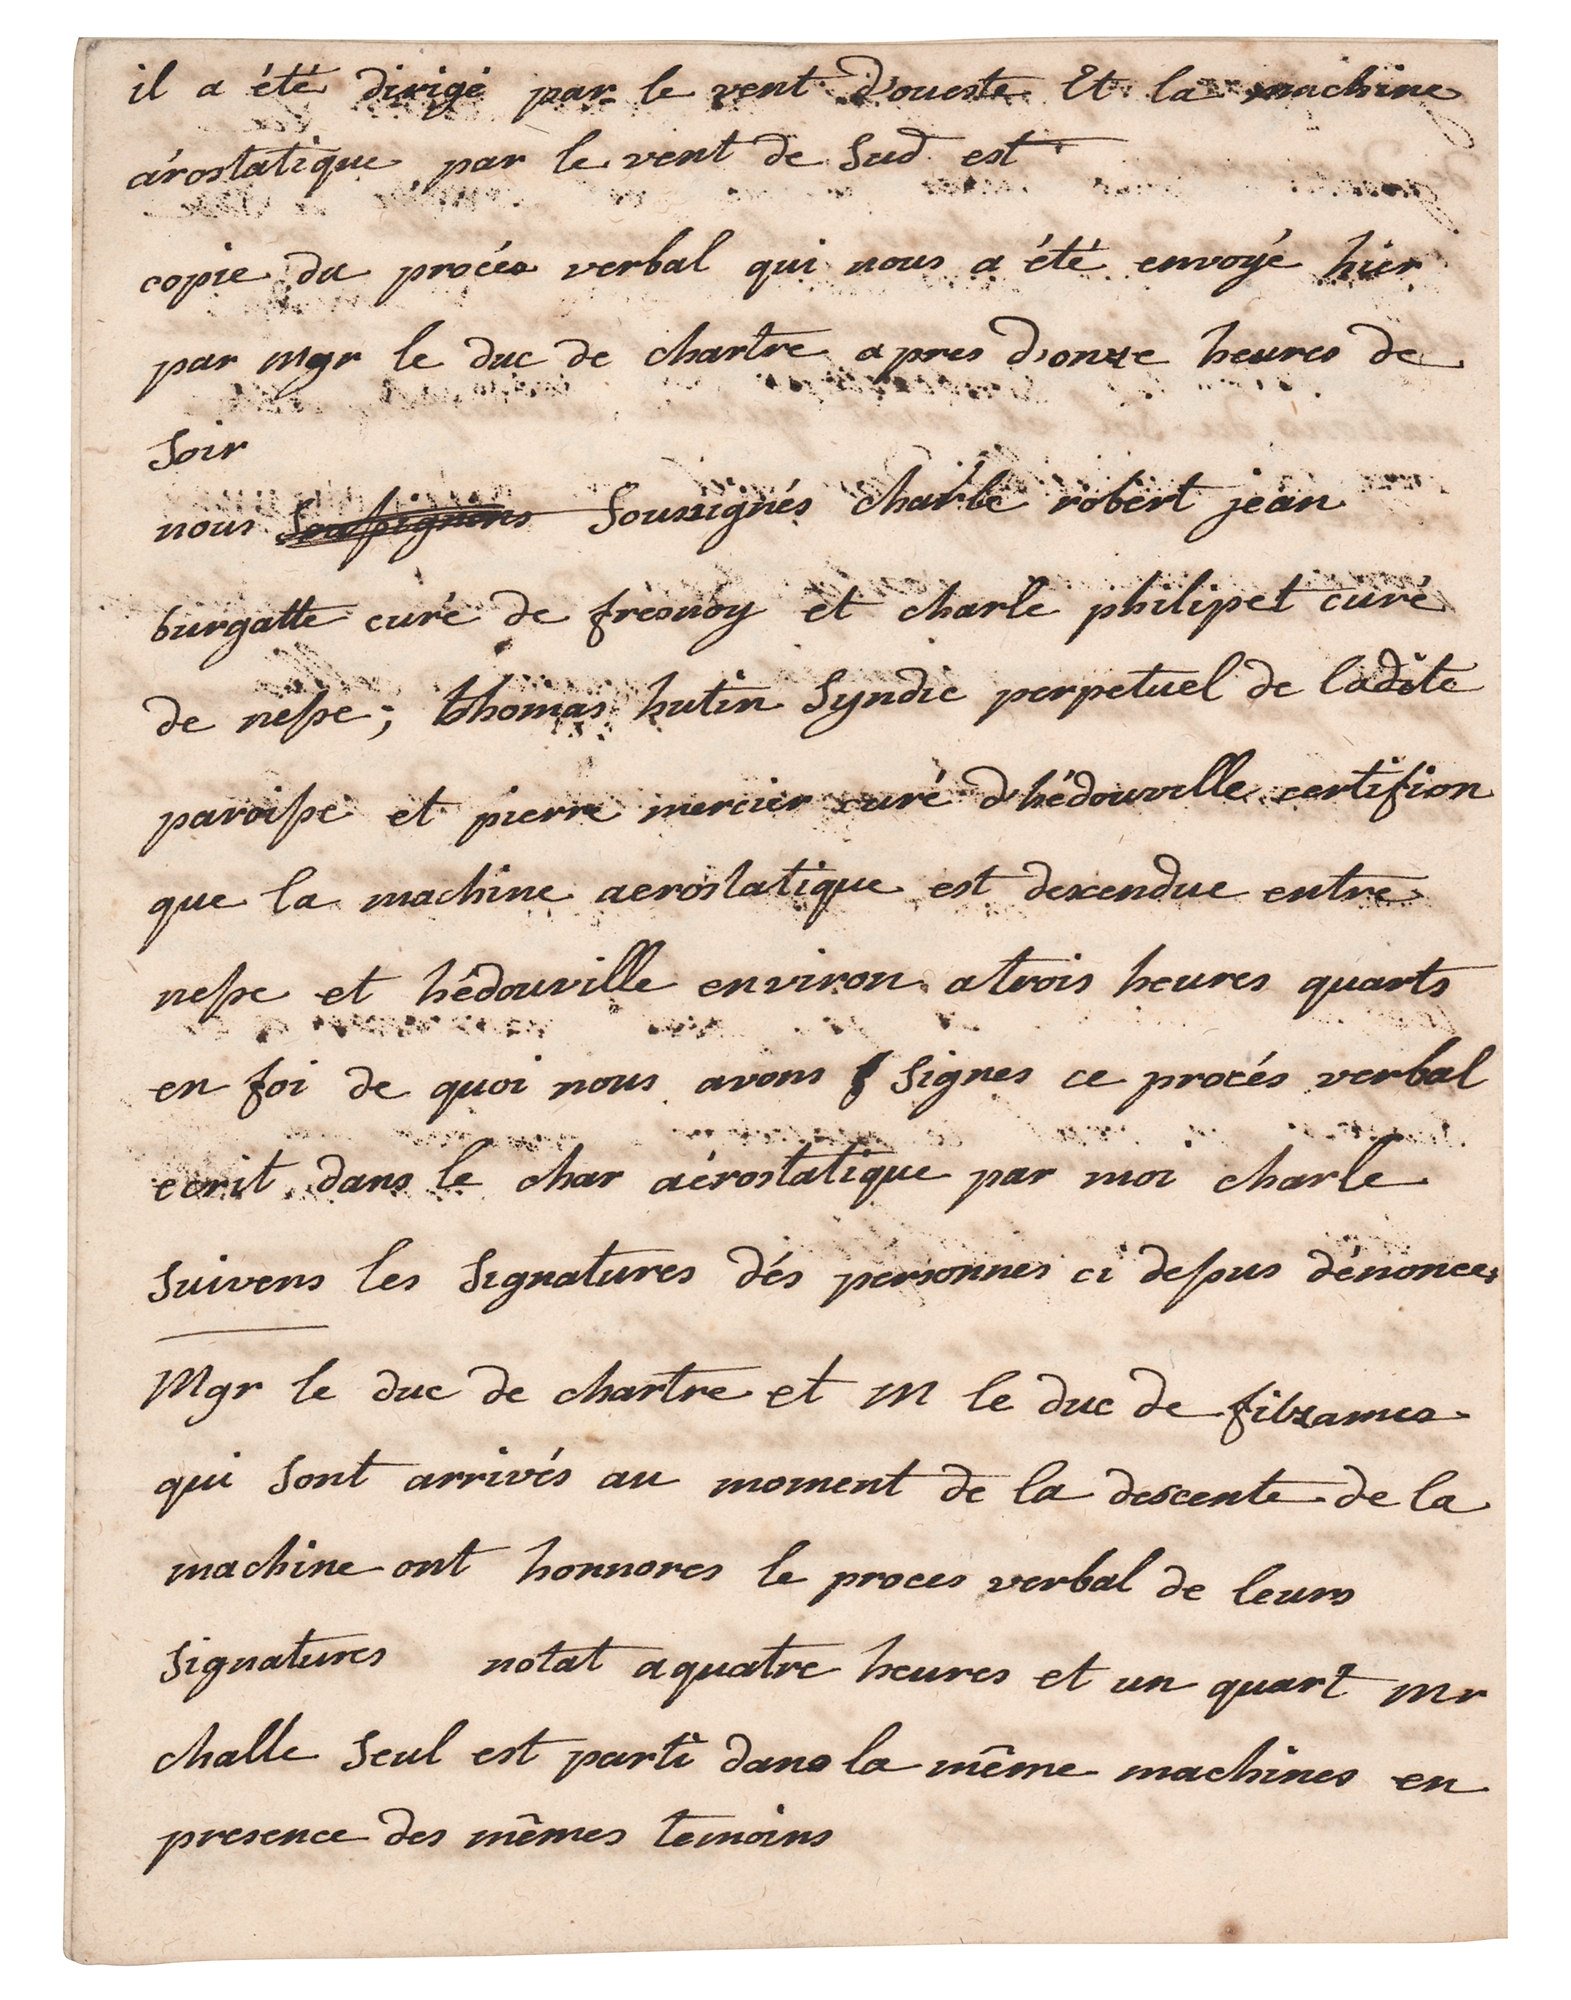 il a été dirigé par le vent d'oueste Et la machine
árostatique par le vent de Sud est
copie du procés verbal qui nous a été envoyé hier
par Mgr le duc de chartre apres d'onze heures de
Soir
nous Soussignés charle robert jean
burgatte curé de fresnoy et charle philipet curé
de nesse; thomas hutin Syndic perpetuel de ladite
paroisse et pierre mercier curé d'hédouville certifion
que la machine aerostatique est dexendue entre
nesse et hédouville environ atrois heures quarts
en foi de quoi nous avons Signes ce procés verbal
ecrit dans le char aérostatique par moi charle
Suivens les Signatures dés personnes ci dessus dénonces
Mgr le duc de chartre et M le duc de fitzames
qui Sont arrivés au moment de la descente de la
machine ont honnores le proces verbal de leurs
Signatures notat aquatre heures et un quart Mr
challe Seul est parti dans la même machines en
presence des mêmes temoins